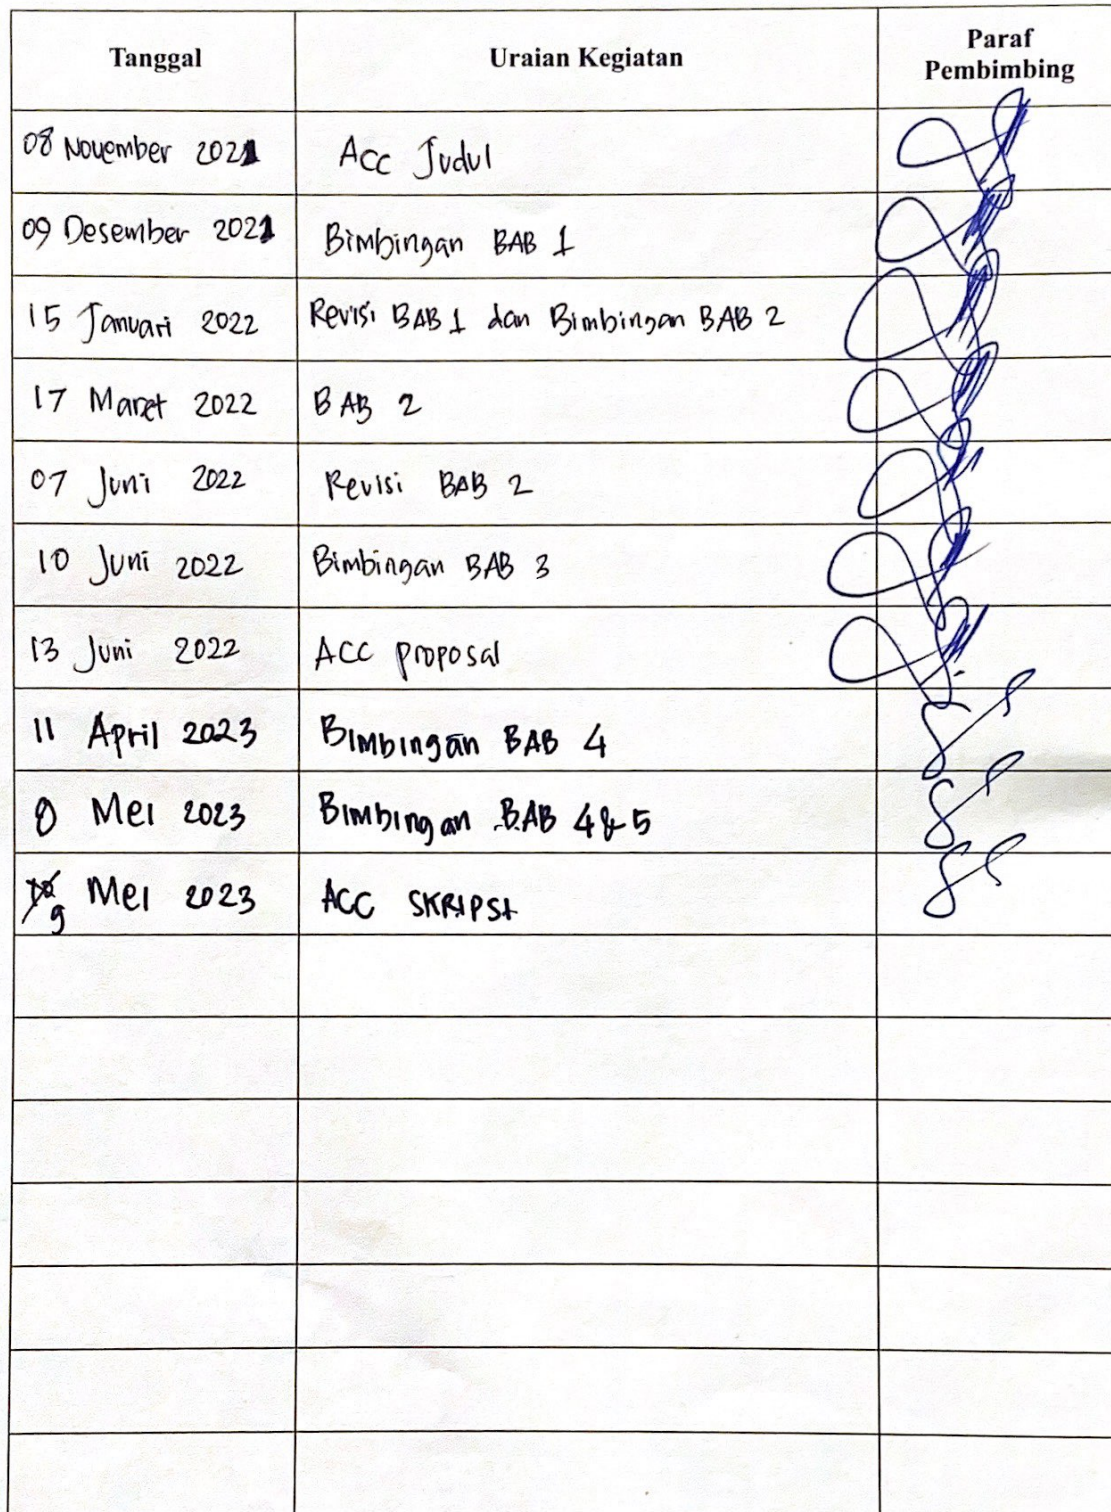 Tanggal Uraian Kegiatan Paraf
Pembimbing
08 November 2021 Acc Judul
09 Desember 2021 Bimbingan BAB 1
15 Januari 2022 Revisi BAB 1 dan Bimbingan BAB 2
17 Maret 2022 BAB 2
07 Juni 2022 Revisi BAB 2
10 Juni 2022 Bimbingan BAB 3
13 Juni 2022 ACC proposal
11 April 2023 Bimbingan BAB 4
8 Mei 2023 Bimbingan BAB 4 & 5
9 Mei 2023 ACC SKRIPSI